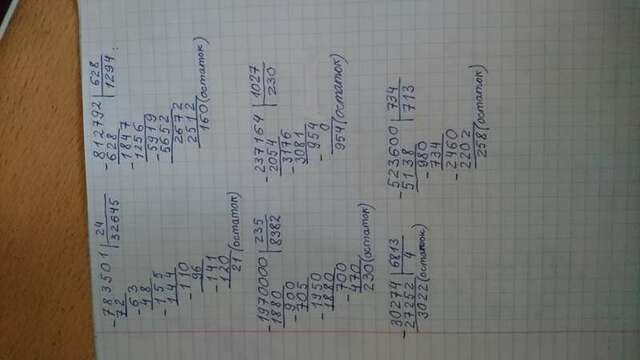 -783501 | 24
72 | 32645
-63
48
-155
144
-110
96
-141
120
21 (остаток)
-812792 | 628
628 | 1294
-1847
1256
-5919
5652
2672
2512
160 (остаток)
-1970000 | 235
1880 | 8382
-900
705
-1950
1880
-700
470
230 (остаток)
-237164 | 1027
2054 | 230
-3176
3081
-954
0
954 (остаток)
-30274 | 6813
27252 | 4
3022 (остаток)
-523600 | 734
5138 | 713
-980
734
-2460
2202
258 (остаток)